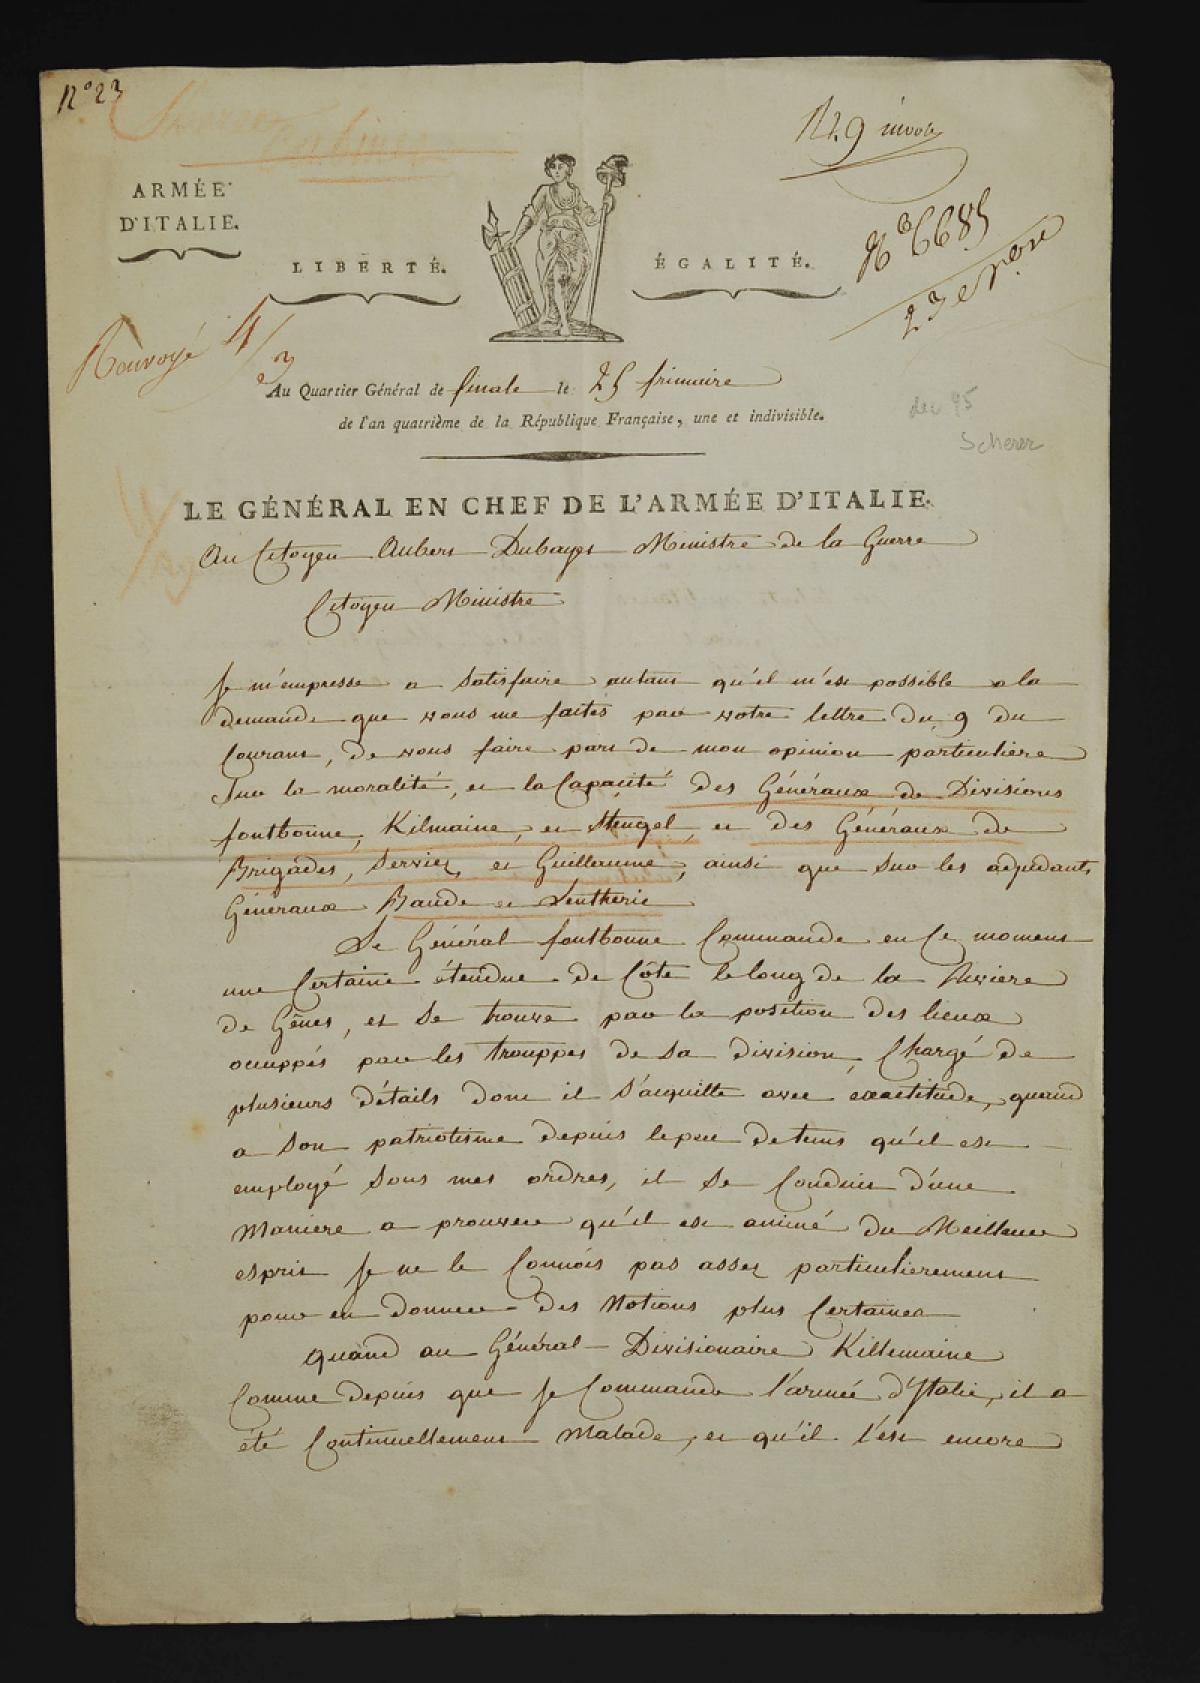 N° 23
R. 9 nivose
ARMÉE
D'ITALIE.
N° 6685
LIBERTÉ.
ÉGALITÉ.
23
Renvoyé 4/3
Au Quartier Général de finale le 25 frimaire
de l'an quatrième de la République Française, une et indivisible.
dec 95
Scherer
LE GÉNÉRAL EN CHEF DE L'ARMÉE D'ITALIE.
Au Citoyen Aubert Dubayet Ministre de la Guerre
Citoyen Ministre
Je m'empresse a Satisfaire autant qu'il m'est possible a la
demande que vous me faites par votre lettre du 9 du
Courant, de vous faire part de mon opinion particulière
Sur la moralité, et la Capacité des Généraux de Divisions
fontbonne, Kilmaine, et Stengel, et des Généraux de
Brigades, Serviez et Guillaume, ainsi que sur les adjudants
Généraux Baude et Lentherie
Le Général fontbonne Commande en Ce moment
une Certaine étendue de Côte le long de la Riviere
de Gênes, et Se trouve par la position des lieux
occuppés par les trouppes de Sa division, Chargé de
plusieurs détails dont il S'acquitte avec exactitude, quand
a Son patriotisme depuis le peu de tems qu'il est
employé Sous mes ordres, il Se Conduit d'une
Maniere a prouver qu'il est animé du Meilleur
esprit Je ne le Connois pas assez particulierement
pour en donner des Notions plus Certaines
quand au Général Divisionaire Killemaine
Comme depuis que Je Commande l'armée d'Italie, il a
été Continuellement Malade, et qu'il l'est encore